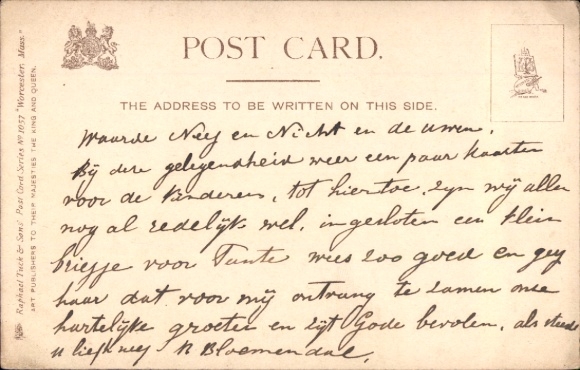 POST CARD.
THE ADDRESS TO BE WRITTEN ON THIS SIDE.
Raphael Tuck & Sons' Post Card Series No 1057 "Worcester, Mass."
ART PUBLISHERS TO THEIR MAJESTIES THE KING AND QUEEN.
Waarde Neef en Nicht en de uwen,
Bij dese gelegendheid weer een paar kaarten
voor de kinderen, tot hiertoe zyn wij allen
nog al redelijk wel, ingesloten een klein
briefje voor Tante wees zoo goed en geef
haar dat voor mij ontvang te zamen onze
hartelijke groeten en zijt Gode bevolen, als steeds
u liefh neef R Bloemendal,